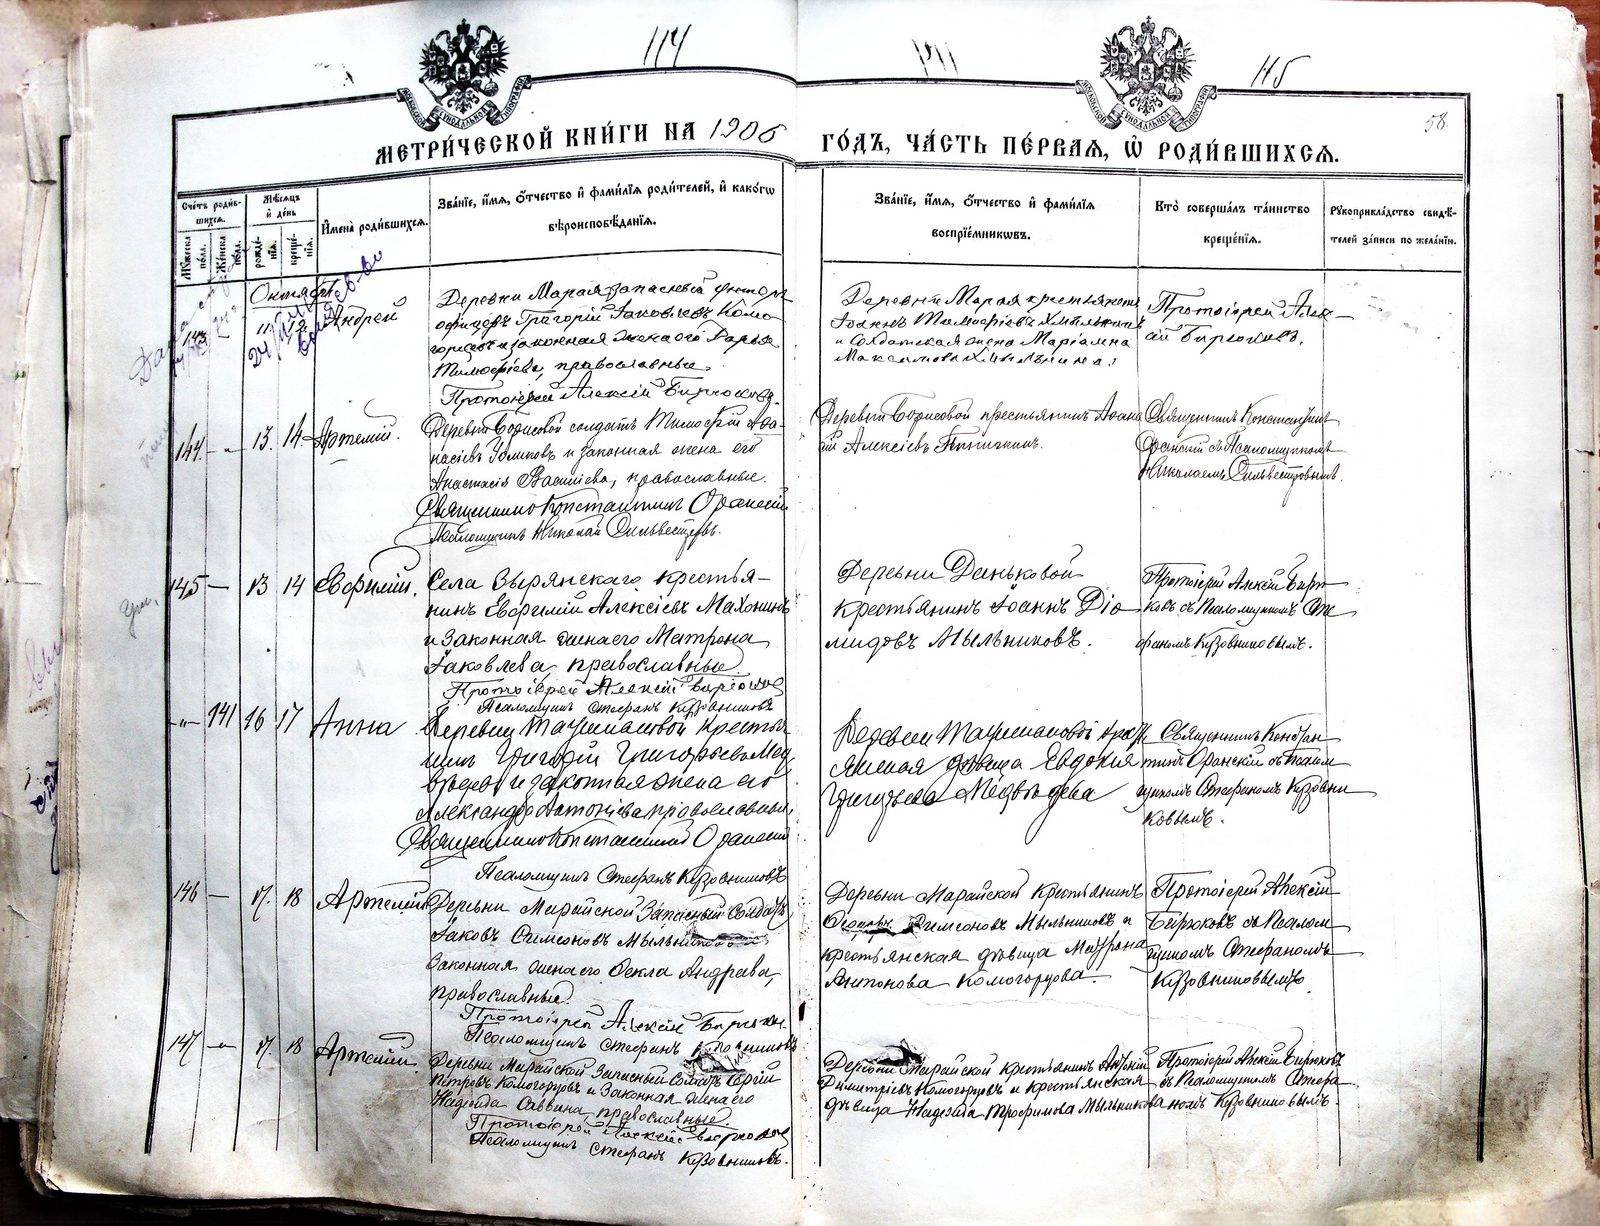 114
115
58
МЕТРИ́ЧЕСКОЙ КНИ́ГИ НА 1906 ГО́ДЪ, ЧА́СТЬ ПЕ́РВАѦ, Ѽ РОДИ́ВШИХСѦ.
Сче́тъ роди́в-
шихся.
Мꙋ́жеска по́ла.
Же́нска по́ла.
Мѣ́сяцъ
и҆ де́нь
рожде́нїя.
креще́нїя.
И҆мена̀ роди́вшихся.
Зва́нїе, и҆́мя, ѻ҆́тчество и҆ фами́лїя роди́телей, и҆ како́гѡ
вѣроисповѣ́данїя.
Зва́нїе, и҆́мя, ѻ҆́тчество и҆ фами́лїя
воспрїе́мникѡвъ.
Кто̀ соверша́лъ та́инство
креще́нїя.
Рꙋкоприкла́дство свидѣ́-
телей за́писи по жела́нїю.
Октябрь
143
11
12
Андрей
Деревни Марая запасный унтеръ
офицеръ Григорій Іаковлевъ Комо
горцевъ и законная жена его Дарья
Тимофѣева, православные.
Протоіерей Алексій Бирюковъ.
Деревни Марая крестьянинъ
Іоаннъ Тимофѣевъ Мыльникъ
и Солдатская жена Маріамна
Максимова Мыльникова.
Протоіерей Алек-
сій Бирюковъ.
144 - " - 13. 14 Артемій.
Деревни Борисовой солдатъ Тимофей Аѳа-
насіевъ и законная жена его
Анастасія Васильева, православные.
Священникъ Константинъ Оранскій
Псаломщикъ Николай Сильвестровъ.
Деревни Борисовой крестьянинъ
Алексіевъ
Священникъ Константинъ
Оранскій съ Псаломщикомъ
Николаемъ Сильвестровымъ.
145 — 13 14 Евфимій.
Села Зырянскаго крестья-
нинъ Евфимій Алексіевъ Махонинъ
и законная жена его Матрона
Іаковлева, православные.
Протоіерей Алексій Бирюковъ
Псаломщикъ Стефанъ Кузовниковъ
Деревни Даньковой
крестьянинъ Іоаннъ Діо-
мидовъ Мыльниковъ.
Протоіерей Алексій Бирю-
ковъ съ Псаломщикомъ Сте
фаномъ Кузовниковымъ.
-"- 141 16 17 Анна
Деревни Таушкановой крестья
нинъ Григорій Григорьевъ Мед
вѣдевъ и законная жена его
Александра Антоніева, православные.
Священникъ Константинъ Оранскій
Псаломщикъ Стефанъ Кузовниковъ
Деревни Таушкановой крестья
янская дѣвица Евдокія
Григорьева Медвѣдева
Священникъ Констан
тинъ Оранскій съ Псалом
щикомъ Стефаномъ Кузовни
ковымъ.
146 — 17. 18 Артемій
Деревни Марайской Запасный Солдатъ
Іаковъ Симеоновъ Мыльниковъ и
Законная жена его Ѳекла Андреева,
православные.
Протоіерей Алексій Бирюковъ
Псаломщикъ Стефанъ Кузовниковъ
Деревни Марайской крестьянинъ
Симеоновъ Мыльниковъ и
крестьянская дѣвица Матрона
Антонова Комогорцова.
Протоіерей Алексій
Бирюковъ съ Псалом
щикомъ Стефаномъ
Кузовниковымъ
147 - " 17. 18 Артемій.
Деревни Марайской Запасный Солдатъ Сергій
Петровъ Комогорцовъ и Законная жена его
Надежда Саввина, православные.
Протоіерей Алексій Бирюковъ
Псаломщикъ Стефанъ Кузовниковъ.
Деревни Марайской крестьянинъ
Димитріевъ Комогорцовъ и крестьянская
дѣвица Надежда Трофимова Мыльникова
Протоіерей Алексій Бирюковъ
съ Псаломщикомъ Стефа
номъ Кузовниковымъ.